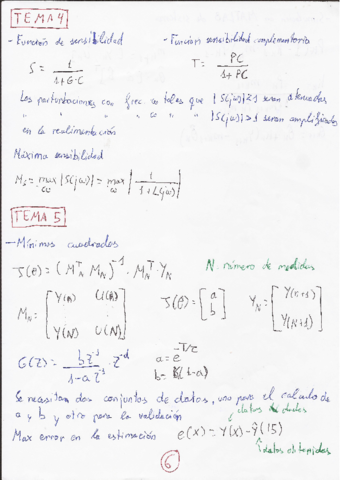 TEMA 4
- Función de sensibilidad
- Función sensibilidad complementaria
S = 1 / (1+G·C)
T = PC / (1+PC)
Las perturbaciones con frec. ω tales que |S(jω)|<1 seran atenuadas
" " " ω " |S(jω)|>1 seran amplificadas
en la realimentación
Máxima sensibilidad
Ms = max ω |S(jω)| = max ω | 1 / (1+L(jω)) |
TEMA 5
- Mínimos cuadrados
(θ) = (M_N^T M_N)^-1 · M_N^T · Y_N
N: número de medidas
M_N = [ Y(n) U(n) ⋮ Y(N) U(N) ]
(θ) = [ a b ]
Y_N = [ Y(n+1) ⋮ Y(N+1) ]
G(z) = b z^-1 / (1-a z^-1) · z^-d
a = e^-T/τ
b = K(1-a)
Se necesitan dos conjuntos de datos, uno para el calculo de
a y b y otro para la validación
datos dados
Max error en la estimación e(x) = Y(x) - Ŷ(15)
datos obtenidos
6